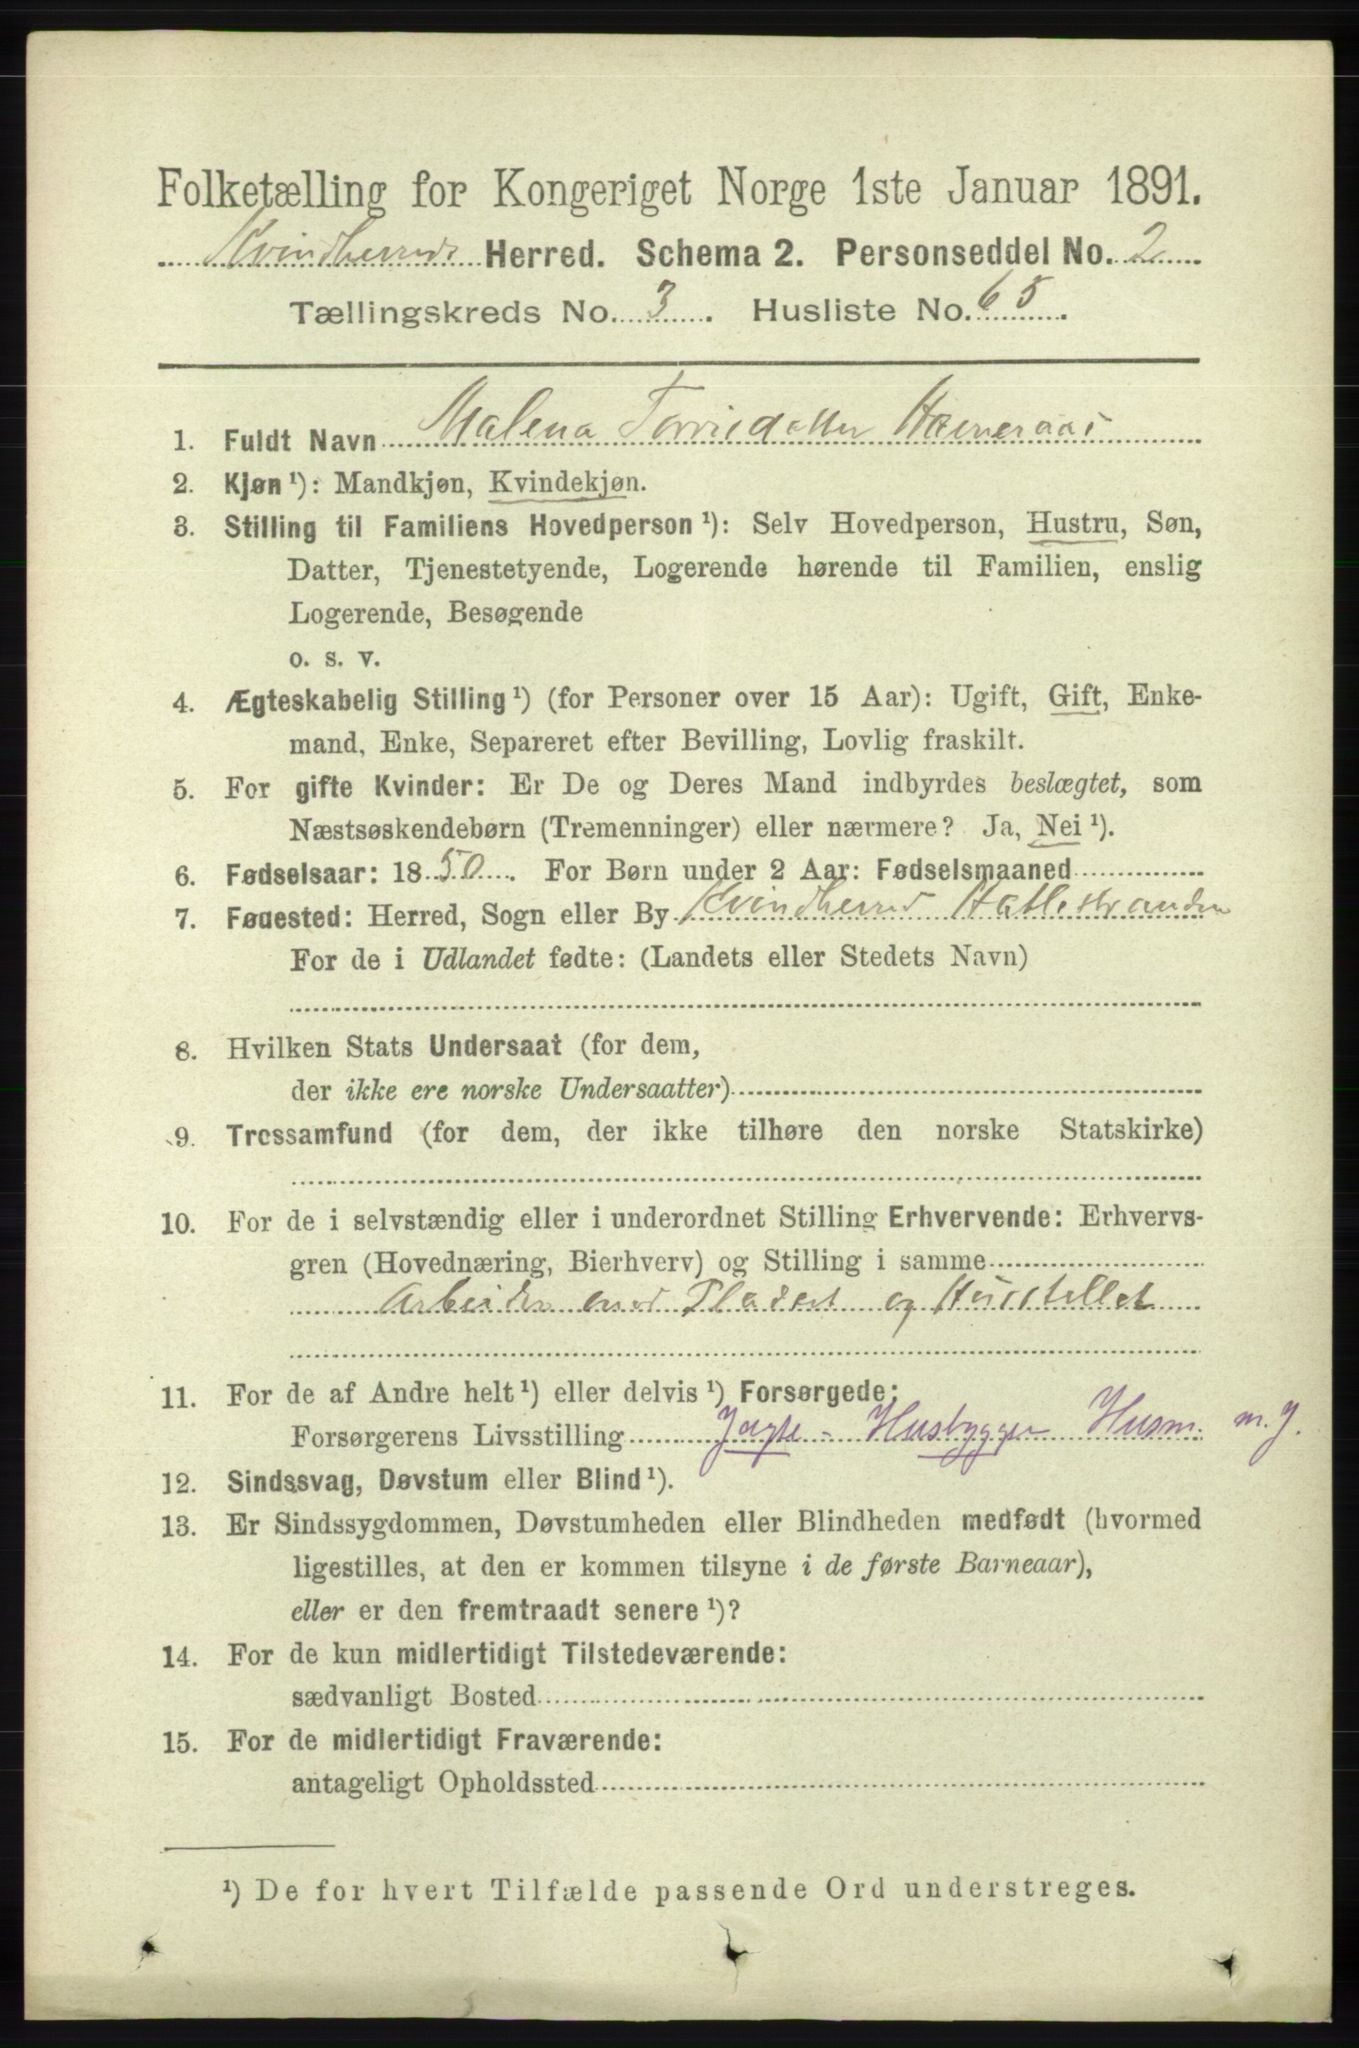 Folketælling for Kongeriget Norge 1ste Januar 1891.
Kvindherreds Herred. Schema 2. Personseddel No. 2
Tællingskreds No. 3. Husliste No. 65.
1. Fuldt Navn Malena
2. Kjøn ¹): Mandkjøn, Kvindekjøn.
3. Stilling til Familiens Hovedperson ¹): Selv Hovedperson, Hustru, Søn,
Datter, Tjenestetyende, Logerende hørende til Familien, enslig
Logerende, Besøgende
o. s. v.
4. Ægteskabelig Stilling ¹) (for Personer over 15 Aar): Ugift, Gift, Enke-
mand, Enke, Separeret efter Bevilling, Lovlig fraskilt.
5. For gifte Kvinder: Er De og Deres Mand indbyrdes beslægtet, som
Næstsøskendebørn (Tremenninger) eller nærmere? Ja, Nei ¹).
6. Fødselsaar: 1850. For Børn under 2 Aar: Fødselsmaaned
7. Føuested: Herred, Sogn eller By Kvindherred
For de i Udlandet fødte: (Landets eller Stedets Navn)
8. Hvilken Stats Undersaat (for dem,
der ikke ere norske Undersaatter)
9. Trossamfund (for dem, der ikke tilhøre den norske Statskirke)
10. For de i selvstændig eller i underordnet Stilling Erhvervende: Erhvervs-
gren (Hovednæring, Bierhverv) og Stilling i samme
Arbeider med Pladset og Husstellet
11. For de af Andre helt ¹) eller delvis ¹) Forsørgede:
Forsørgerens Livsstilling Jagte- Husbygger Husm. m. J.
12. Sindssvag, Døvstum eller Blind ¹).
13. Er Sindssygdommen, Døvstumheden eller Blindheden medfødt (hvormed
ligestilles, at den er kommen tilsyne i de første Barneaar),
eller er den fremtraadt senere ¹)?
14. For de kun midlertidigt Tilstedeværende:
sædvanligt Bosted
15. For de midlertidigt Fraværende:
antageligt Opholdssted
¹) De for hvert Tilfælde passende Ord understreges.